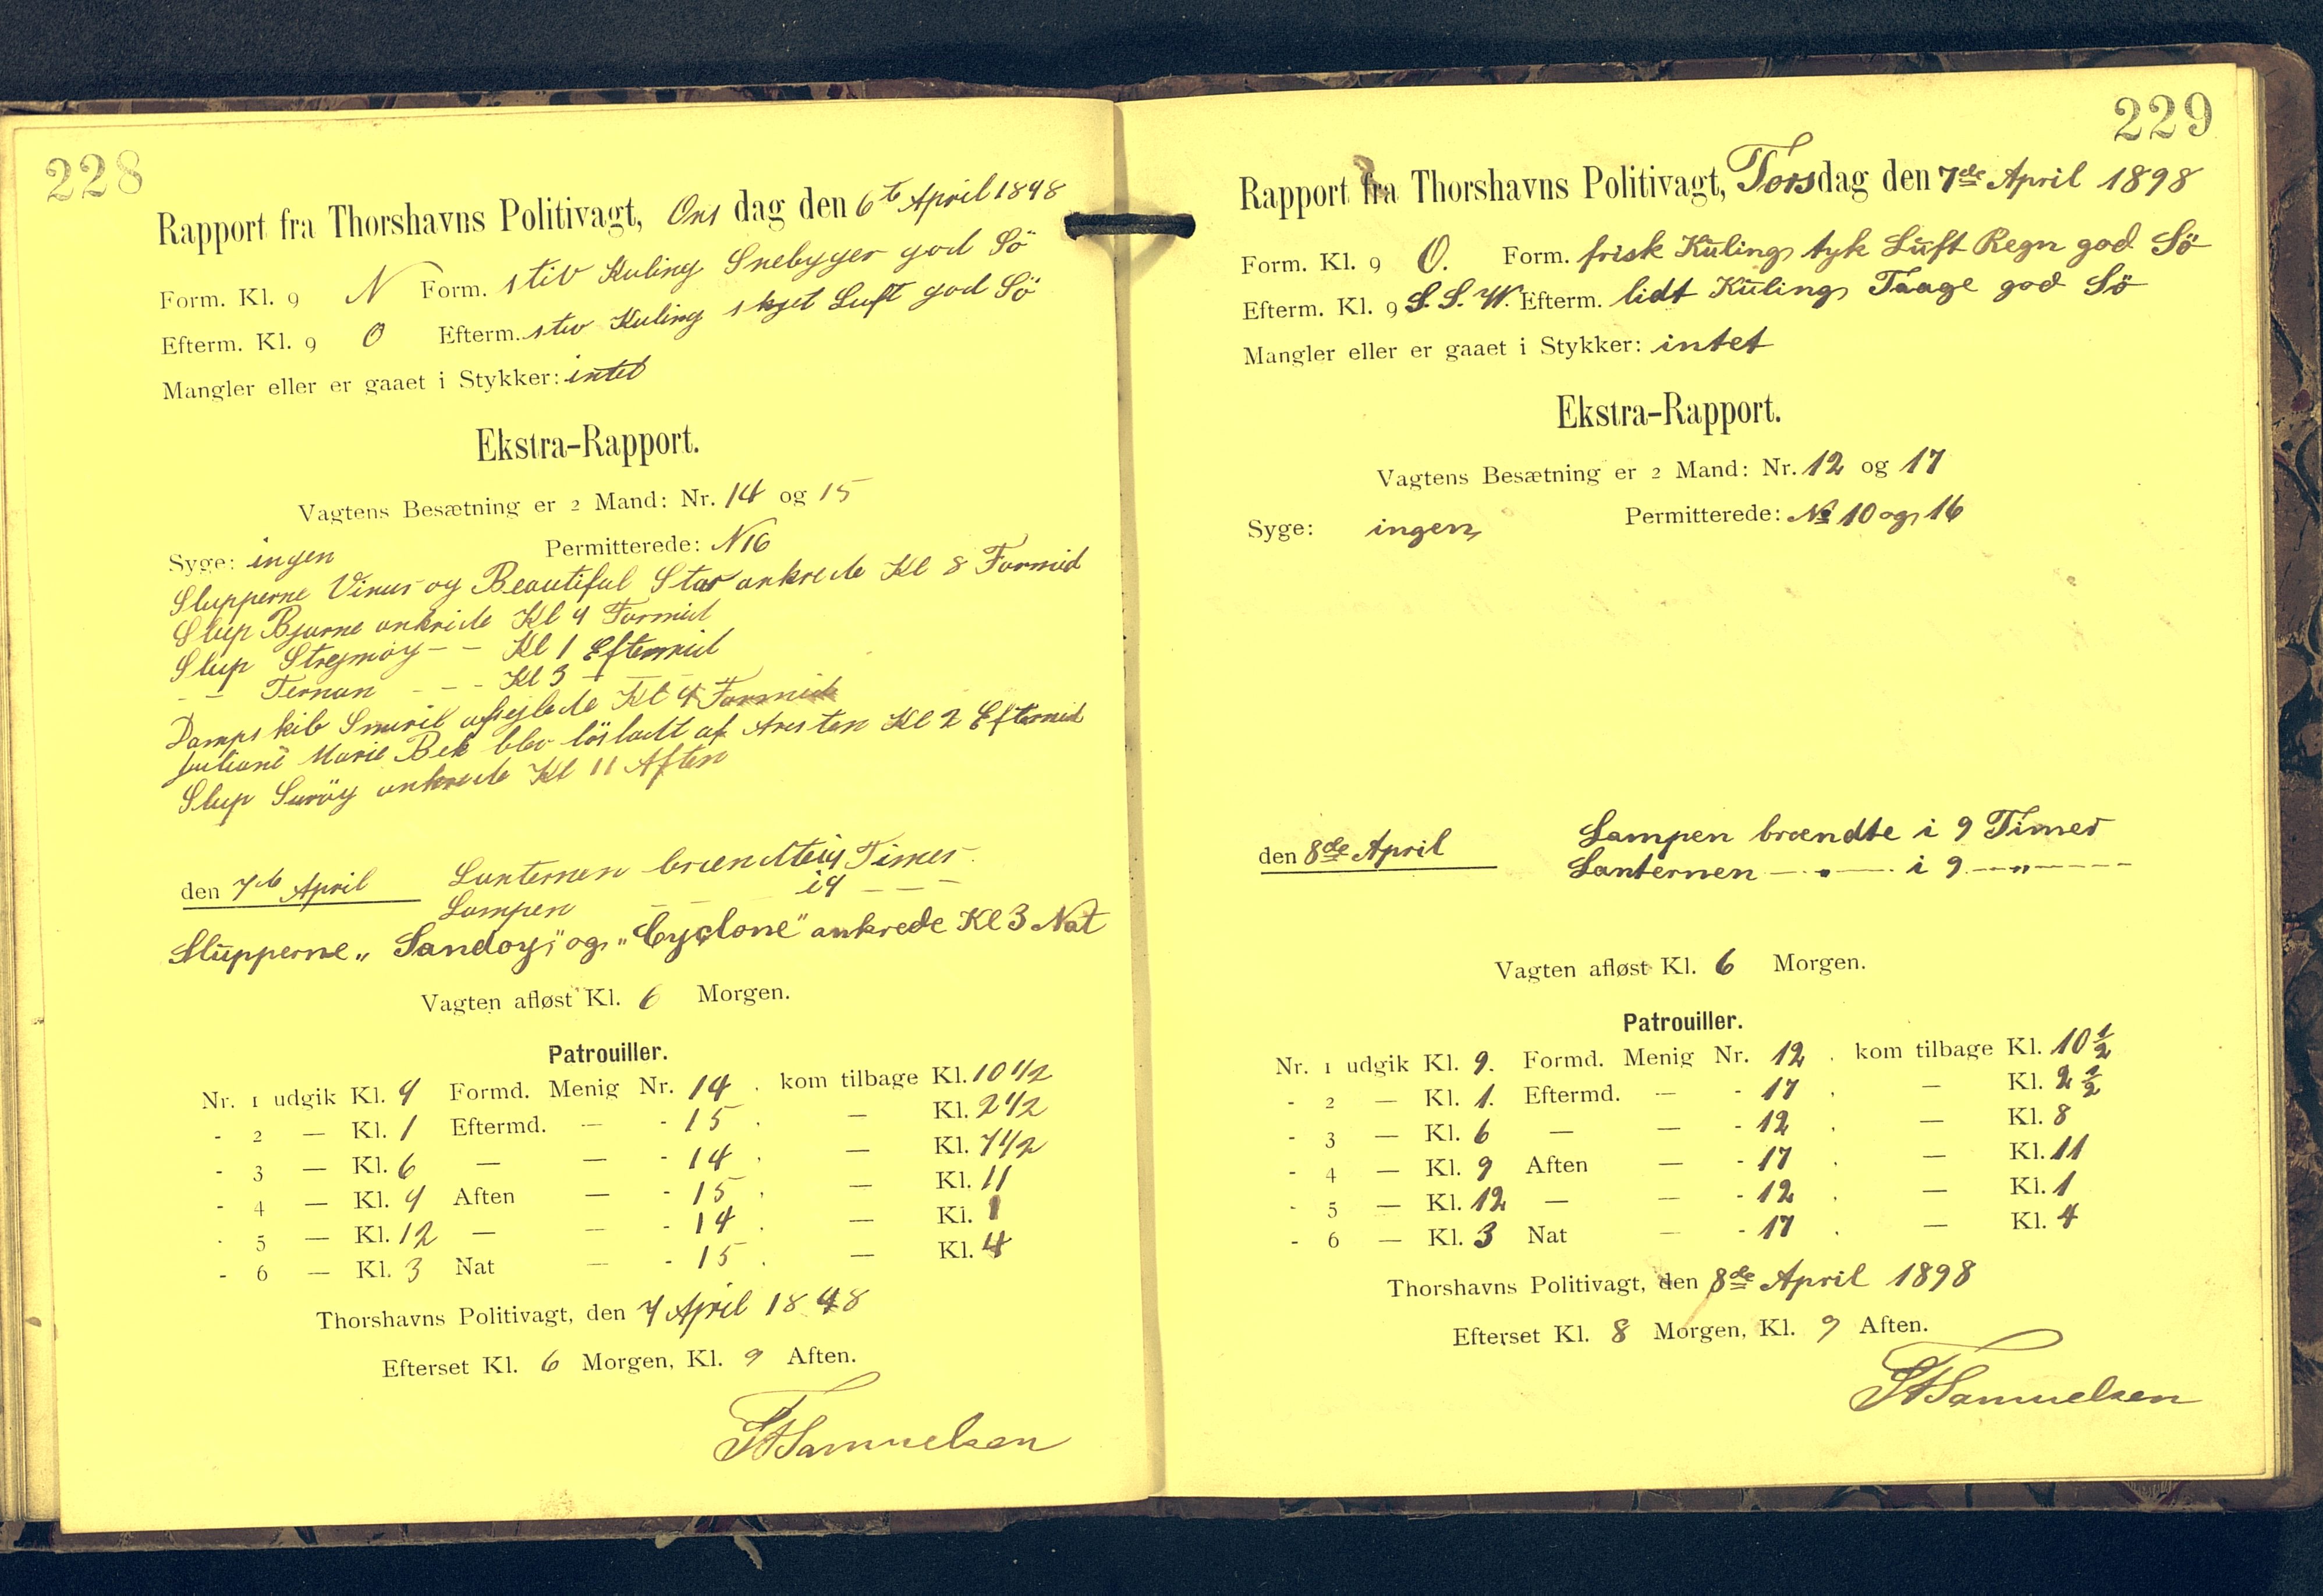 228
Rapport fra Thorshavns Politivagt, Onsdag den 6te April 1898
Form. Kl. 9 N Form. stiv Kuling Snebyger god Sö
Efterm. Kl. 9 O Efterm. stiv Kuling skyet Luft god Sö
Mangler eller er gaaet i Stykker: intet
Ekstra-Rapport.
Vagtens Besætning er 2 Mand: Nr. 14 og 15
Syge: ingen Permitterede: N 16
Slupperne Vinus og Beautiful Star ankrede Kl 8 Formid
Slup Bjarne ankrede Kl 9 Formid
Slup Strejmöy - - Kl 1 Eftermid
- - Ternan - - - Kl 3 - - -
Dampskib Smiril afsejlede Kl 4 Formid
Marie Bek blev lösladt af Aresten Kl 2 Eftermid
Slup Suröy ankrede Kl 11 Aften
den 7de April Lanternen brændte i 9 Timer
Lampen - - - i 9 - - -
Slupperne „Sandoy" og „Cyclone" ankrede Kl 3 Nat
Vagten afløst Kl. 6 Morgen.
Patrouiller.
Nr. 1 udgik Kl. 9 Formd. Menig Nr. 14 . kom tilbage Kl. 10 1/2
- 2 — Kl. 1 Eftermd. — - 15 . — Kl. 2 1/2
- 3 — Kl. 6 — — - 14 . — Kl. 7 1/2
- 4 — Kl. 9 Aften — - 15 . — Kl. 11
- 5 — Kl. 12 — — - 14 . — Kl. 1
- 6 — Kl. 3 Nat — - 15 . — Kl. 4
Thorshavns Politivagt, den 7 April 1898
Efterset Kl. 6 Morgen, Kl. 9 Aften.
Samuelsen
229
Rapport fra Thorshavns Politivagt, Torsdag den 7de April 1898
Form. Kl. 9 O. Form. frisk Kuling tyk Luft Regn god Sö
Efterm. Kl. 9 S. S. W. Efterm. lidt Kuling Taage god Sö
Mangler eller er gaaet i Stykker: intet
Ekstra-Rapport.
Vagtens Besætning er 2 Mand: Nr. 12 og 17
Syge: ingen Permitterede: No 10 og 16
den 8de April Lampen brændte i 9 Timer
Lanternen — „ — i 9 — „ —
Vagten afløst Kl. 6 Morgen.
Patrouiller.
Nr. 1 udgik Kl. 9. Formd. Menig Nr. 12 . kom tilbage Kl. 10 1/2
- 2 — Kl. 1. Eftermd. — - 17 . — Kl. 2 1/2
- 3 — Kl. 6 — — - 12 . — Kl. 8
- 4 — Kl. 9 Aften — - 17 . — Kl. 11
- 5 — Kl. 12 — — - 12 . — Kl. 1
- 6 — Kl. 3 Nat — - 17 . — Kl. 4
Thorshavns Politivagt, den 8de April 1898
Efterset Kl. 8 Morgen, Kl. 9 Aften.
Samuelsen